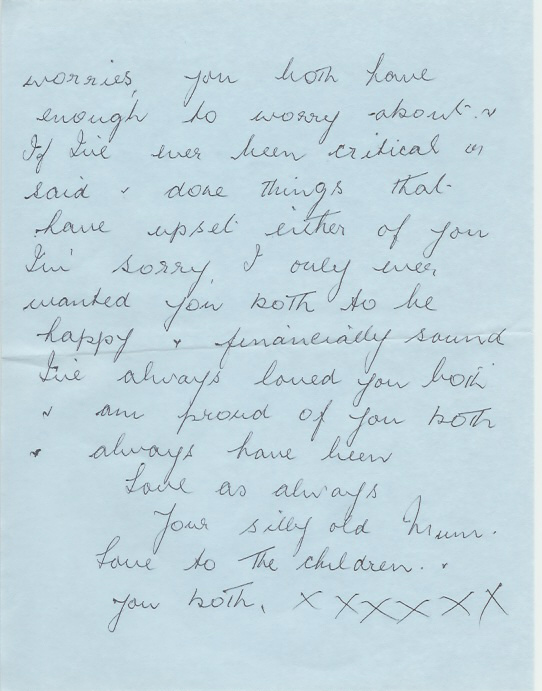 worries, you both have
enough to worry about. &
If I've ever been critical or
said & done things that
have upset either of you
I'm sorry, I only ever
wanted you both to be
happy & financially sound
I've always loved you both
& am proud of you both
& always have been
Love as always
Your silly old Mum.
Love to the children. &
you both, X X X X X X